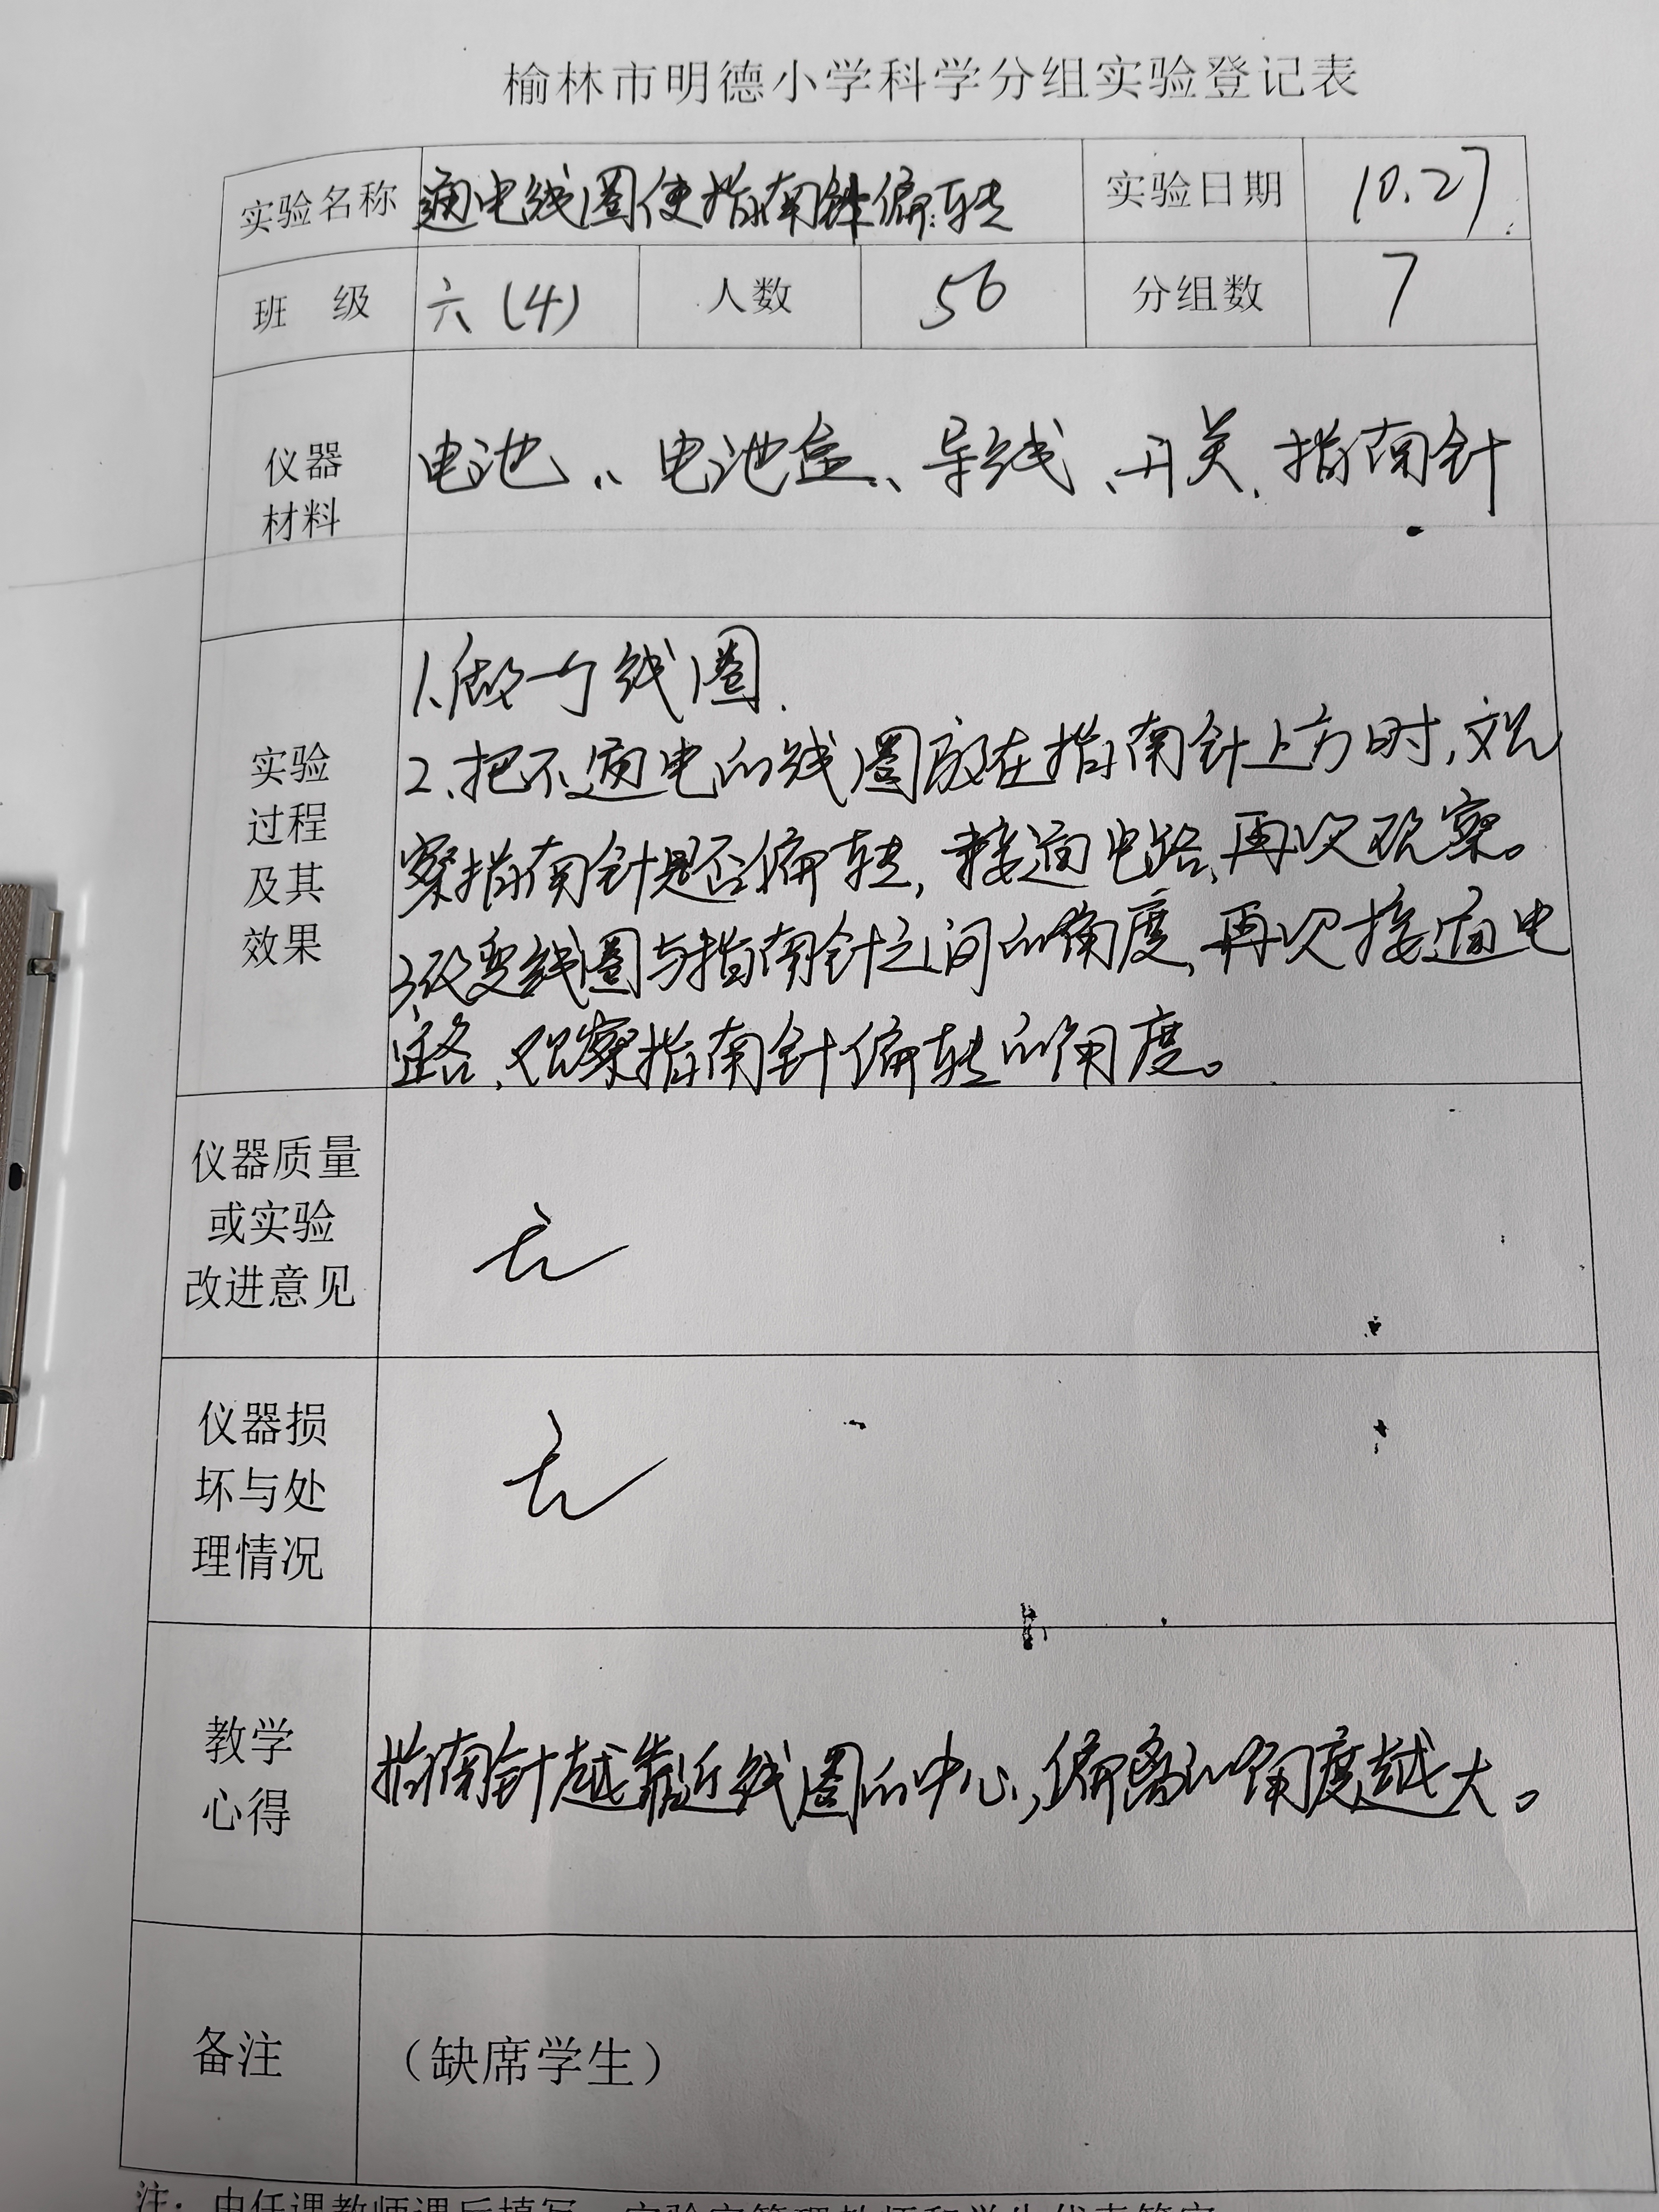 榆林市明德小学科学分组实验登记表
实验名称 通电线圈使指南针偏转 实验日期 10.27
班 级 六(4) 人数 56 分组数 7
仪器
材料
电池、电池盒、导线、开关、指南针
实验
过程
及其
效果
1、做一个线圈.
2、把不通电的线圈放在指南针上方时,观
察指南针是否偏转,接通电路,再次观察。
3、改变线圈与指南针之间的角度,再次接通电
路、观察指南针偏转的角度。
仪器质量
或实验
改进意见
无
仪器损
坏与处
理情况
无
教学
心得
指南针越靠近线圈的中心,偏的角度越大。
备注
(缺席学生)
注:由任课教师课后填写,实验室管理教师和学生代表签字